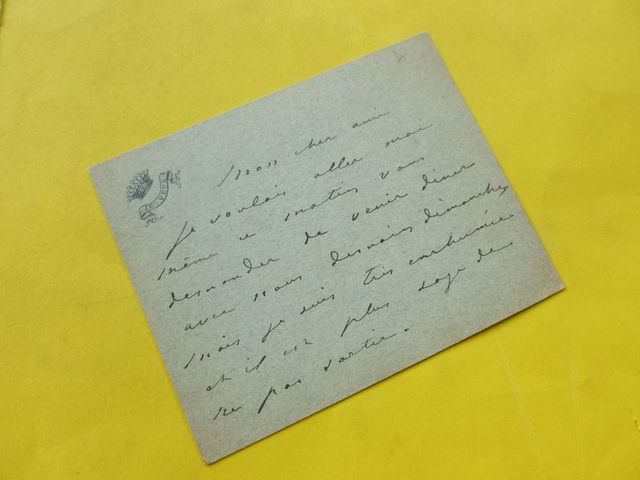 JE VEUX
Mon cher ami
Je voulais aller moi
même ce matin vous
demander de venir diner
avec nous demain dimanche,
Mais je suis très enrhumée
et il est plus sage de
ne pas sortir.